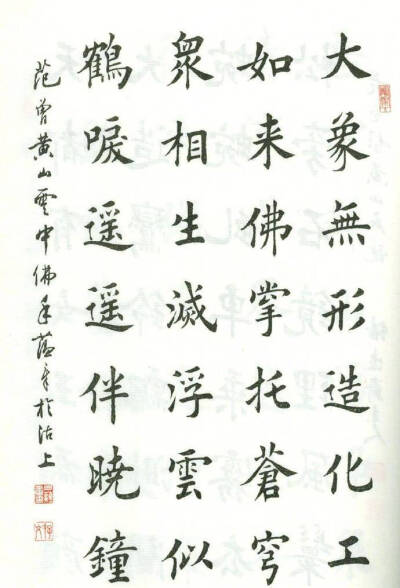 大象無形造化工
如来佛掌托蒼穹
衆相生滅浮雲似
鶴唳遥遥伴曉鐘
范曾黄山雲中佛手於沽上